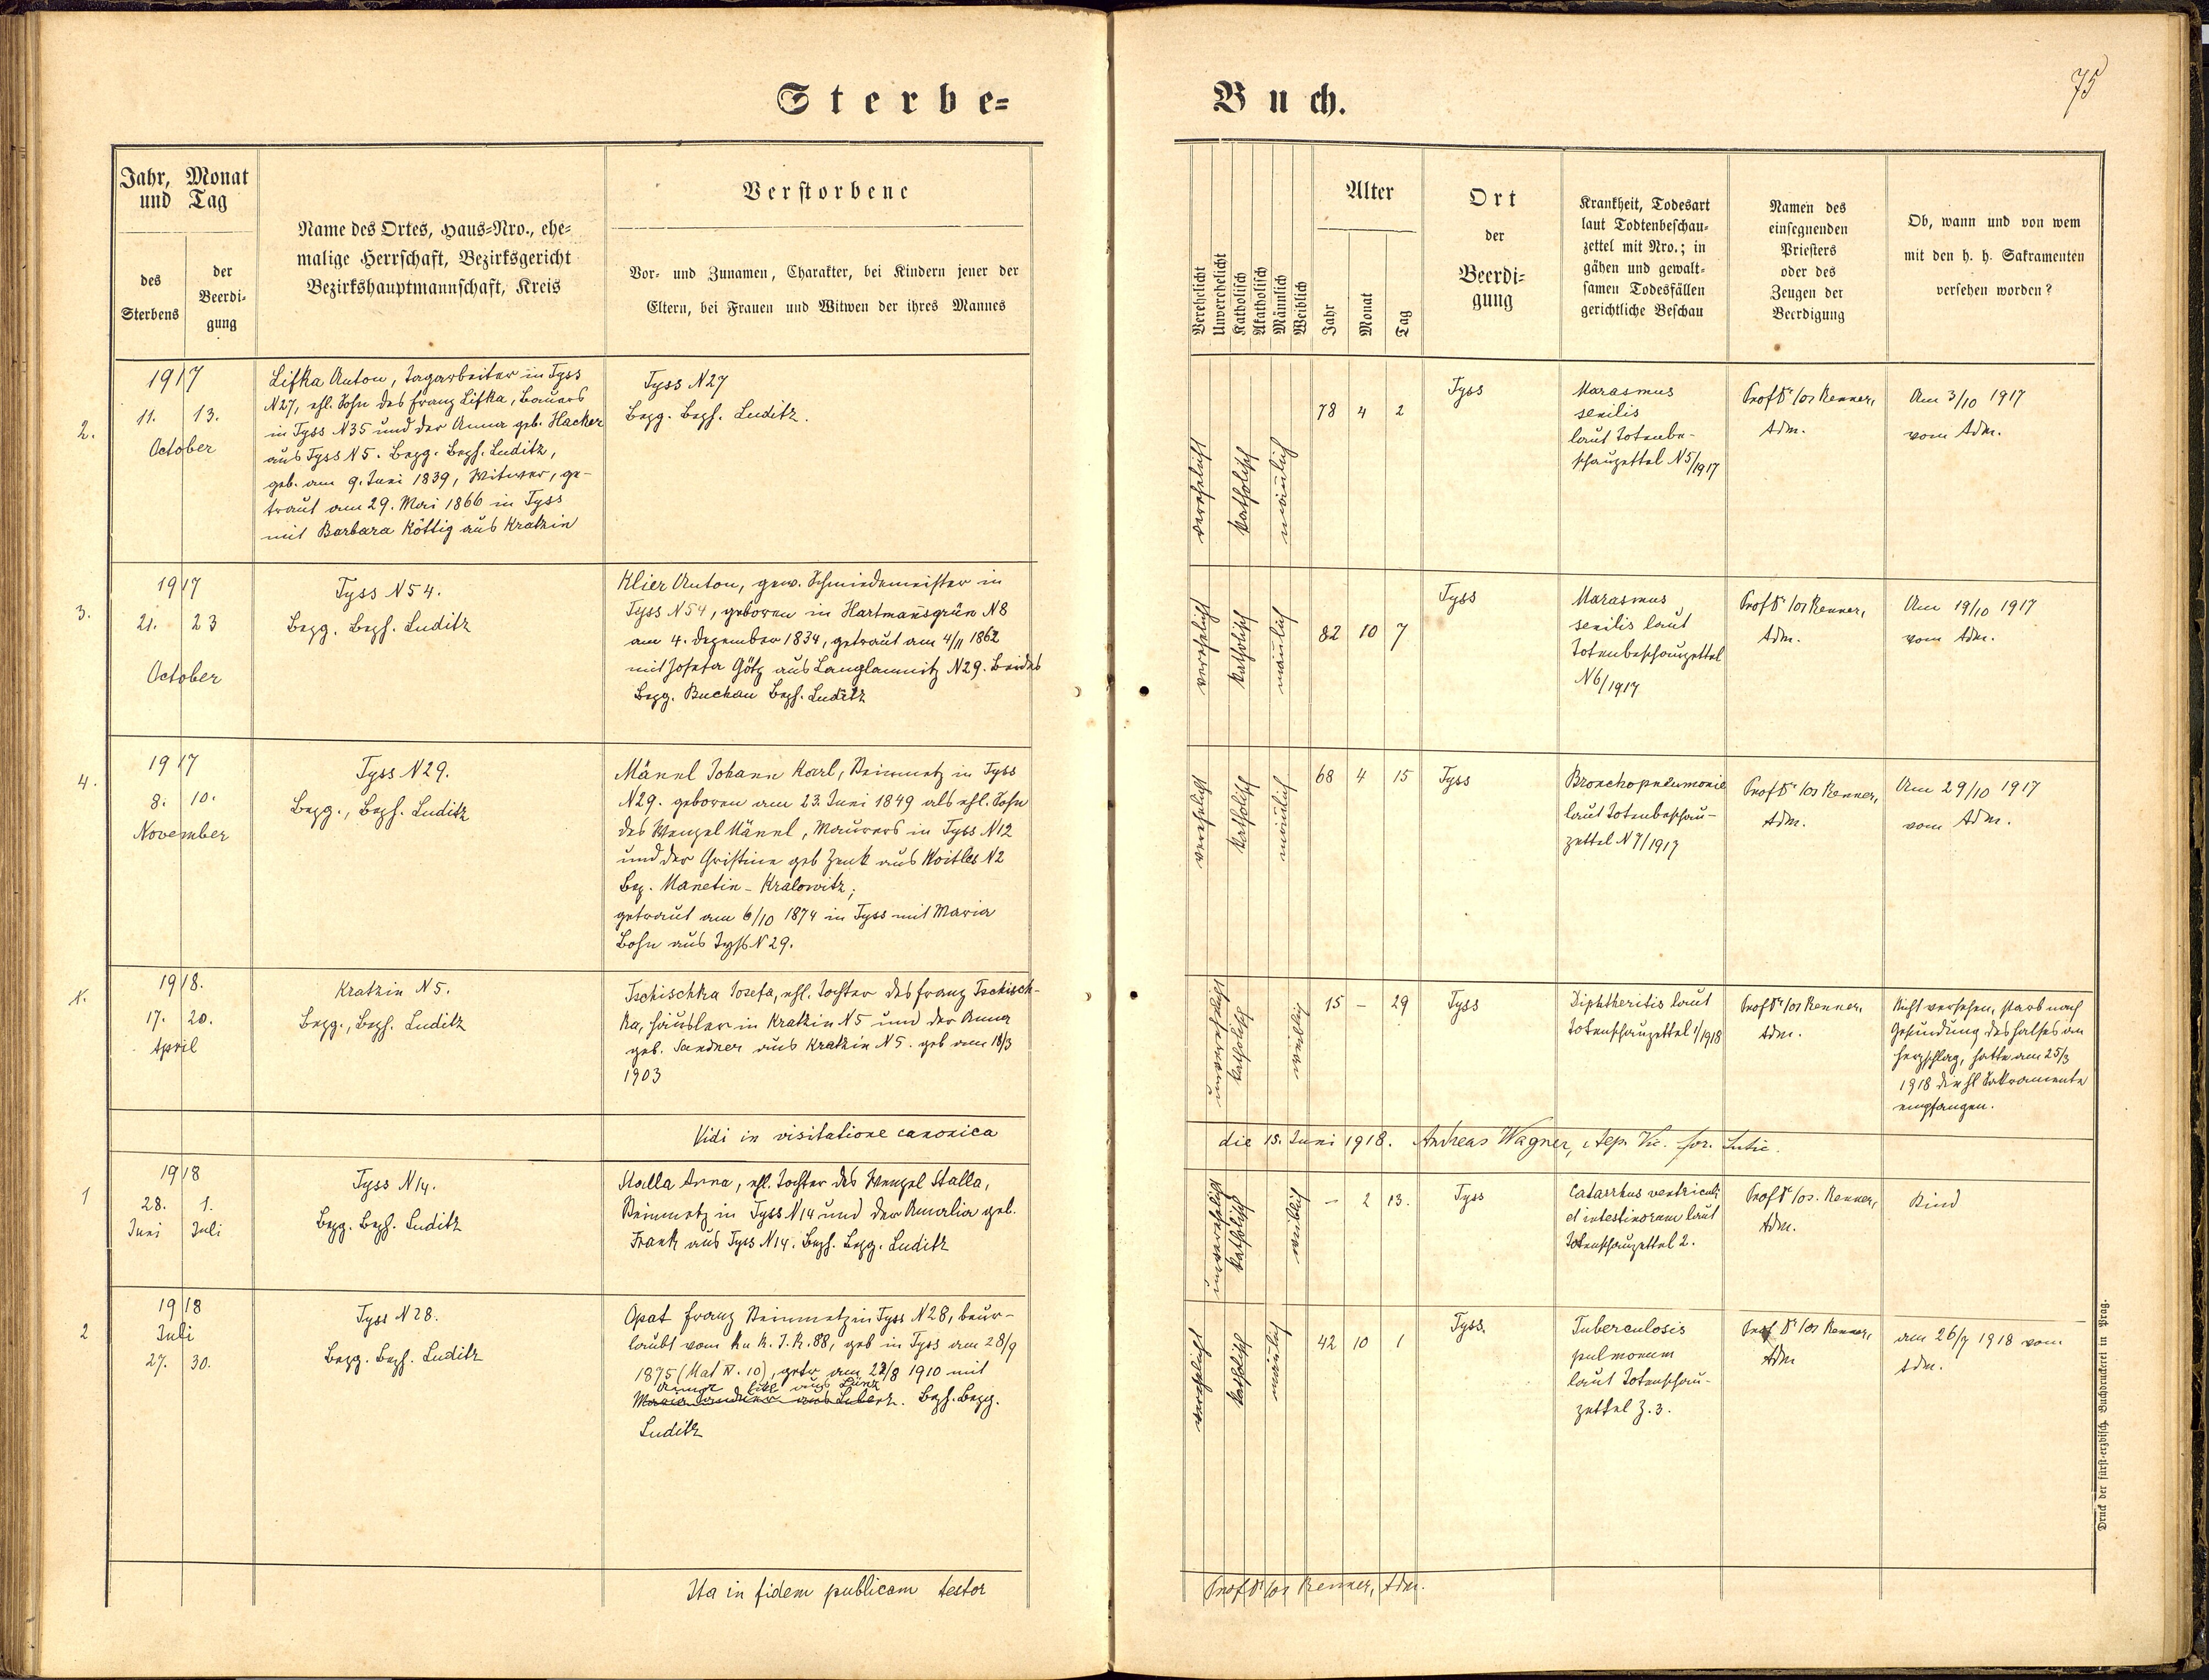 Sterbe=
Buch.
75
Jahr, Monat
und Tag
des
Sterbens
der
Beerdi-
gung
Name des Ortes, Haus=Nro., ehe=
malige Herrschaft, Bezirksgericht
Bezirkshauptmannschaft, Kreis
Verstorbene
Vor- und Zunamen, Charakter, bei Kindern jener der
Eltern, bei Frauen und Witwen der ihres Mannes
Verehelicht
Unverehelicht
Katholisch
Akatholisch
Männlich
Weiblich
Alter
Jahr
Monat
Tag
Ort
der
Beerdi-
gung
Krankheit, Todesart
laut Todtenbeschau-
zettel mit Nro.; in
gähen und gewalt-
samen Todesfällen
gerichtliche Beschau
Namen des
einsegnenden
Priesters
oder des
Zeugen der
Beerdigung
Ob, wann und von wem
mit den h. h. Sakramenten
versehen worden?
2.
1917
11. 13.
October
Lifka Anton, Tagarbeiter in Tyss
N27, ehl. Sohn des Franz Lifka, Bauers
in Tyss N35 und der Anna geb. Hacker
aus Tyss N5. Bezg. Bezh. Luditz,
geb. am 9. Juni 1839, Witwer, ge-
traut am 29. Mai 1866 in Tyss
mit Barbara Köttig aus Kratzin
Tyss N27
Bezg. Bezh. Luditz.
verehelicht
katholisch
männlich
78 4 2
Tyss
Marasmus
senilis
laut Totenbe-
schauzettel N5/1917
Prof Dr Jos Renner,
Adm.
Am 3/10 1917
vom Adm.
3.
1917
21. 23
October
Tyss N54.
Bezg. Bezh. Luditz
Klier Anton, gew. Schmiedemeister in
Tyss N54, geboren in Hartmansgrün N8
am 4. Dezember 1834, getraut am 4/11 1862
mit Josefa Götz aus Langlamnitz N29. Beides
Bezg. Buchau Bezh. Luditz
verehelicht
katholisch
männlich
82 10 7
Tyss
Marasmus
senilis laut
Totenbeschauzettel
N6/1917
Prof Dr Jos Renner,
Adm.
Am 19/10 1917
vom Adm.
4.
1917
8. 10.
November
Tyss N29.
Bezg., Bezh. Luditz
Männl Johann Karl, Steinmetz in Tyss
N29. geboren am 23. Juni 1849 als ehl. Sohn
des Wenzel Männl, Maurers in Tyss N12
und der Christine geb Zenk aus Woitles N2
Bez. Manetin - Kralowitz;
getraut am 6/10 1874 in Tyss mit Maria
Bohn aus Tyss N29.
verehelicht
katholisch
männlich
68 4 15
Tyss
Bronchopneumonie
laut Totenbeschau-
zettel N7/1917
Prof Dr Jos Renner,
Adm.
Am 29/10 1917
vom Adm.
1918.
17. 20.
April
Kratzin N5.
Bezg., Bezh. Luditz
Tschischka Josefa, ehl. Tochter des Franz Tschisch-
ka, Häusler in Kratzin N5 und der Anna
geb. Sandner aus Kratzin N5. geb am 18/3
1903
unverehelicht
katholisch
weiblich
15 - 29
Tyss
Diphtheritis laut
Totenschauzettel 1/1918
Prof Dr Jos Renner,
Adm.
Nicht versehen, starb nach
Gesundung des Halses an
Herzschlag, hatte am 25/3
1918 die hl Sakramente
empfangen.
Vidi in visitatione canonica
die 15. Juni 1918. Andreas Wagner, Vic. for.
1
1918
28. 1.
Juni Juli
Tyss N14.
Bezg. Bezh. Luditz
Stalla Anna, ehl. Tochter des Wenzel Stalla,
Steinmetz in Tyss N14 und der Amalia geb.
Frank aus Tyss N14. Bezh. Bezg. Luditz
unverehelicht
katholisch
weiblich
- 2 13.
Tyss
Catarrhus ventriculi
et intestinorum laut
Totenschauzettel 2.
Prof Dr Jos. Renner,
Adm.
Kind
2
1918
Juli
27. 30.
Tyss N28.
Bezg. Bezh. Luditz
Opat Franz Steinmetz in Tyss N28, beur-
laubt vom K u K. I. R. 88, geb in Tyss am 28/9
1875 (Mat IV. 10), getr am 22/8 1910 mit
aus
Maria Sandner aus . Bezh. Bezg.
Luditz
verehelicht
katholisch
männlich
42 10 1
Tyss.
Tuberculosis
pulmonum
laut Totenschau-
zettel Z. 3.
Prof Dr Jos Renner,
Adm
am 26/7 1918 vom
Adm.
Ita in fidem publicam testor
Prof Dr Jos Renner, Adm.
Druck der fürst-erzbisch. Buchdruckerei in Prag.